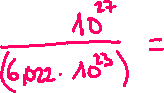 10^27 / (6,022 · 10^23) =